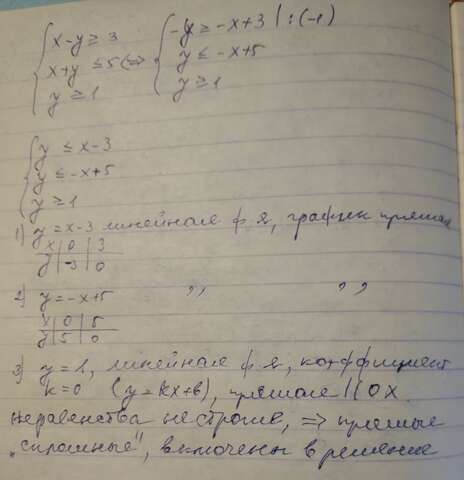 x-y ≥ 3
x+y ≤ 5 <=>
y ≥ 1
-y ≥ -x+3 | :(-1)
y ≤ -x+5
y ≥ 1
y ≤ x-3
y ≤ -x+5
y ≥ 1
1) y=x-3 линейная ф-я, график прямая
x | 0 | 3
y | -3 | 0
2) y=-x+5 ,, ,,
x | 0 | 5
y | 5 | 0
3) y=1, линейная ф-я, коэффициент
k=0 (y=kx+b), прямая || OX.
Неравенства нестрогие, => прямые
"сплошные", включены в решение